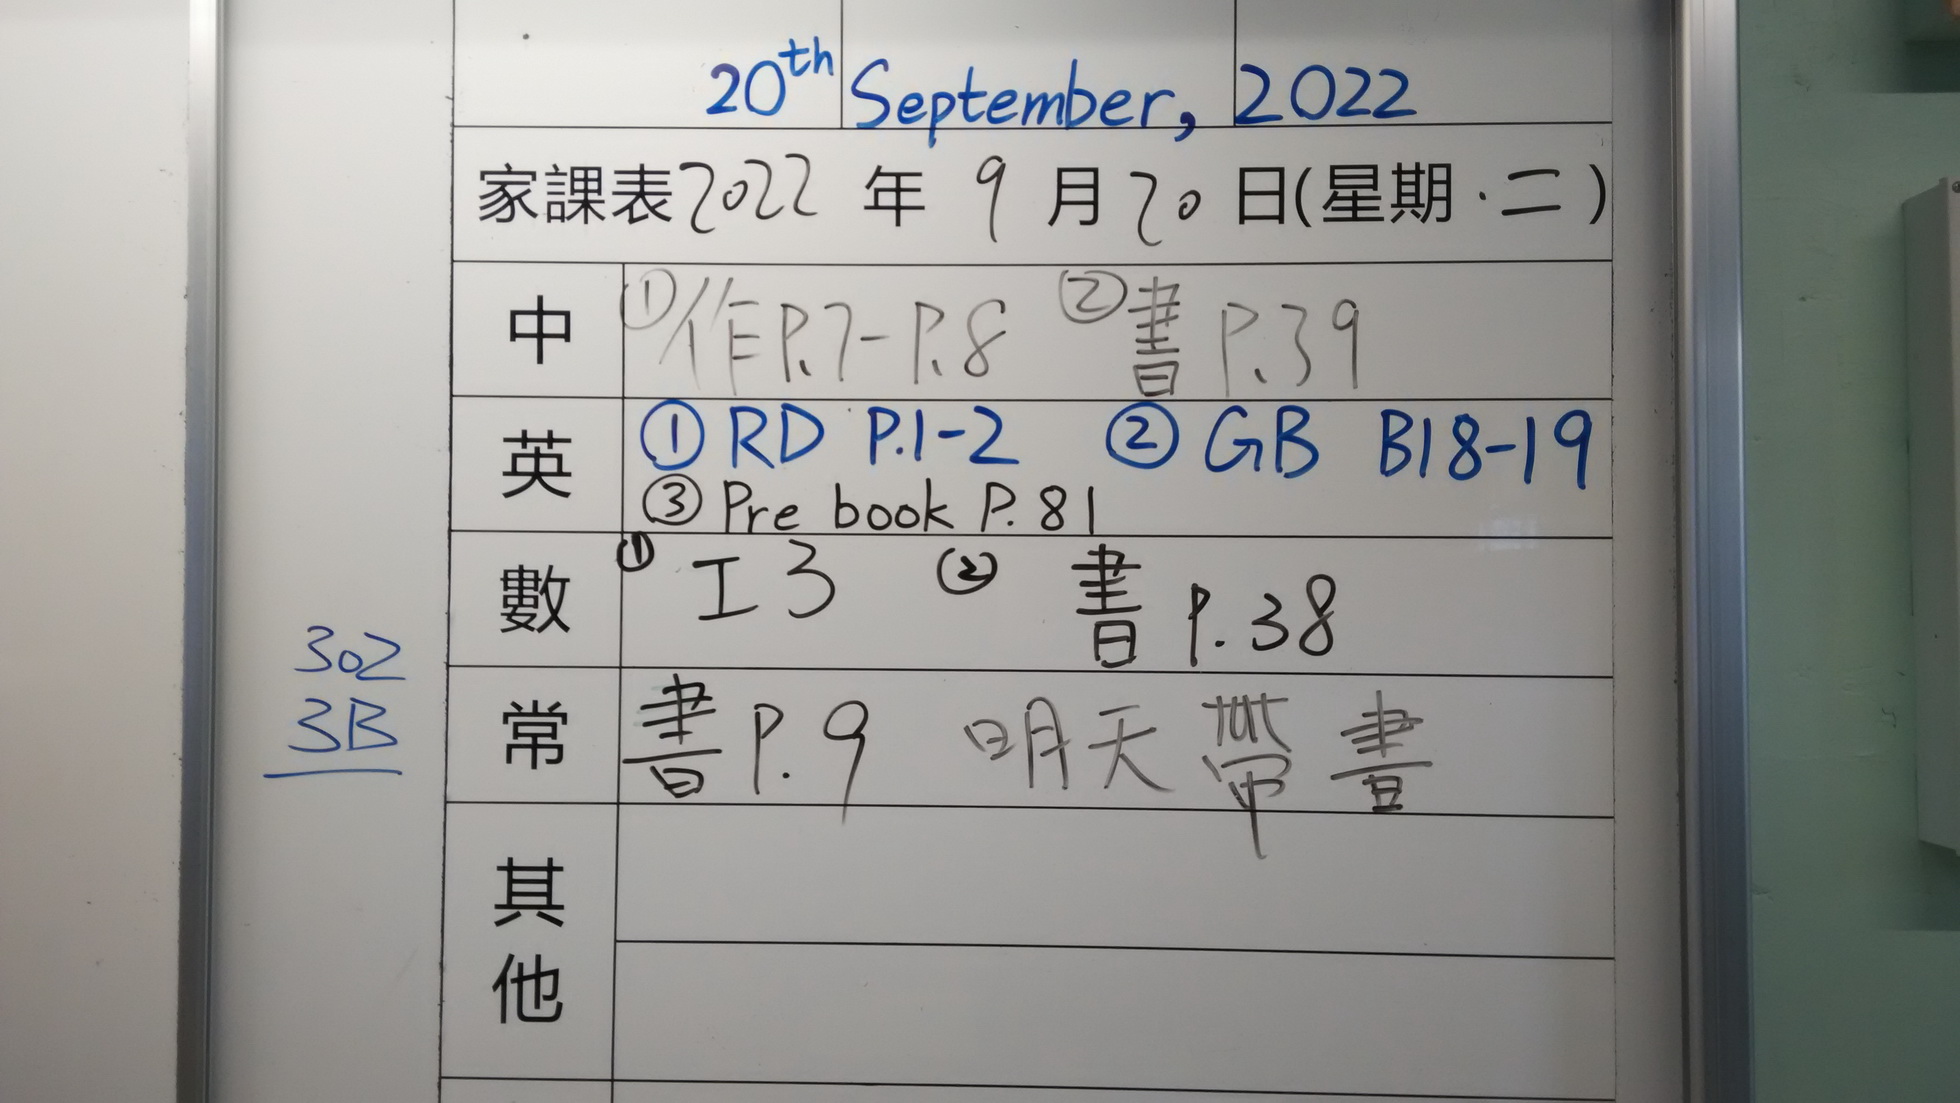 20th September, 2022
家課表2022年9月20日(星期·二)
中 ①作P.7-P.8 ②書P.39
英 ①RD P.1-2 ②GB B18-19
③Pre book P.81
數 ①工3 ②書P.38
常 書P.9 明天帶書
其他
302
3B